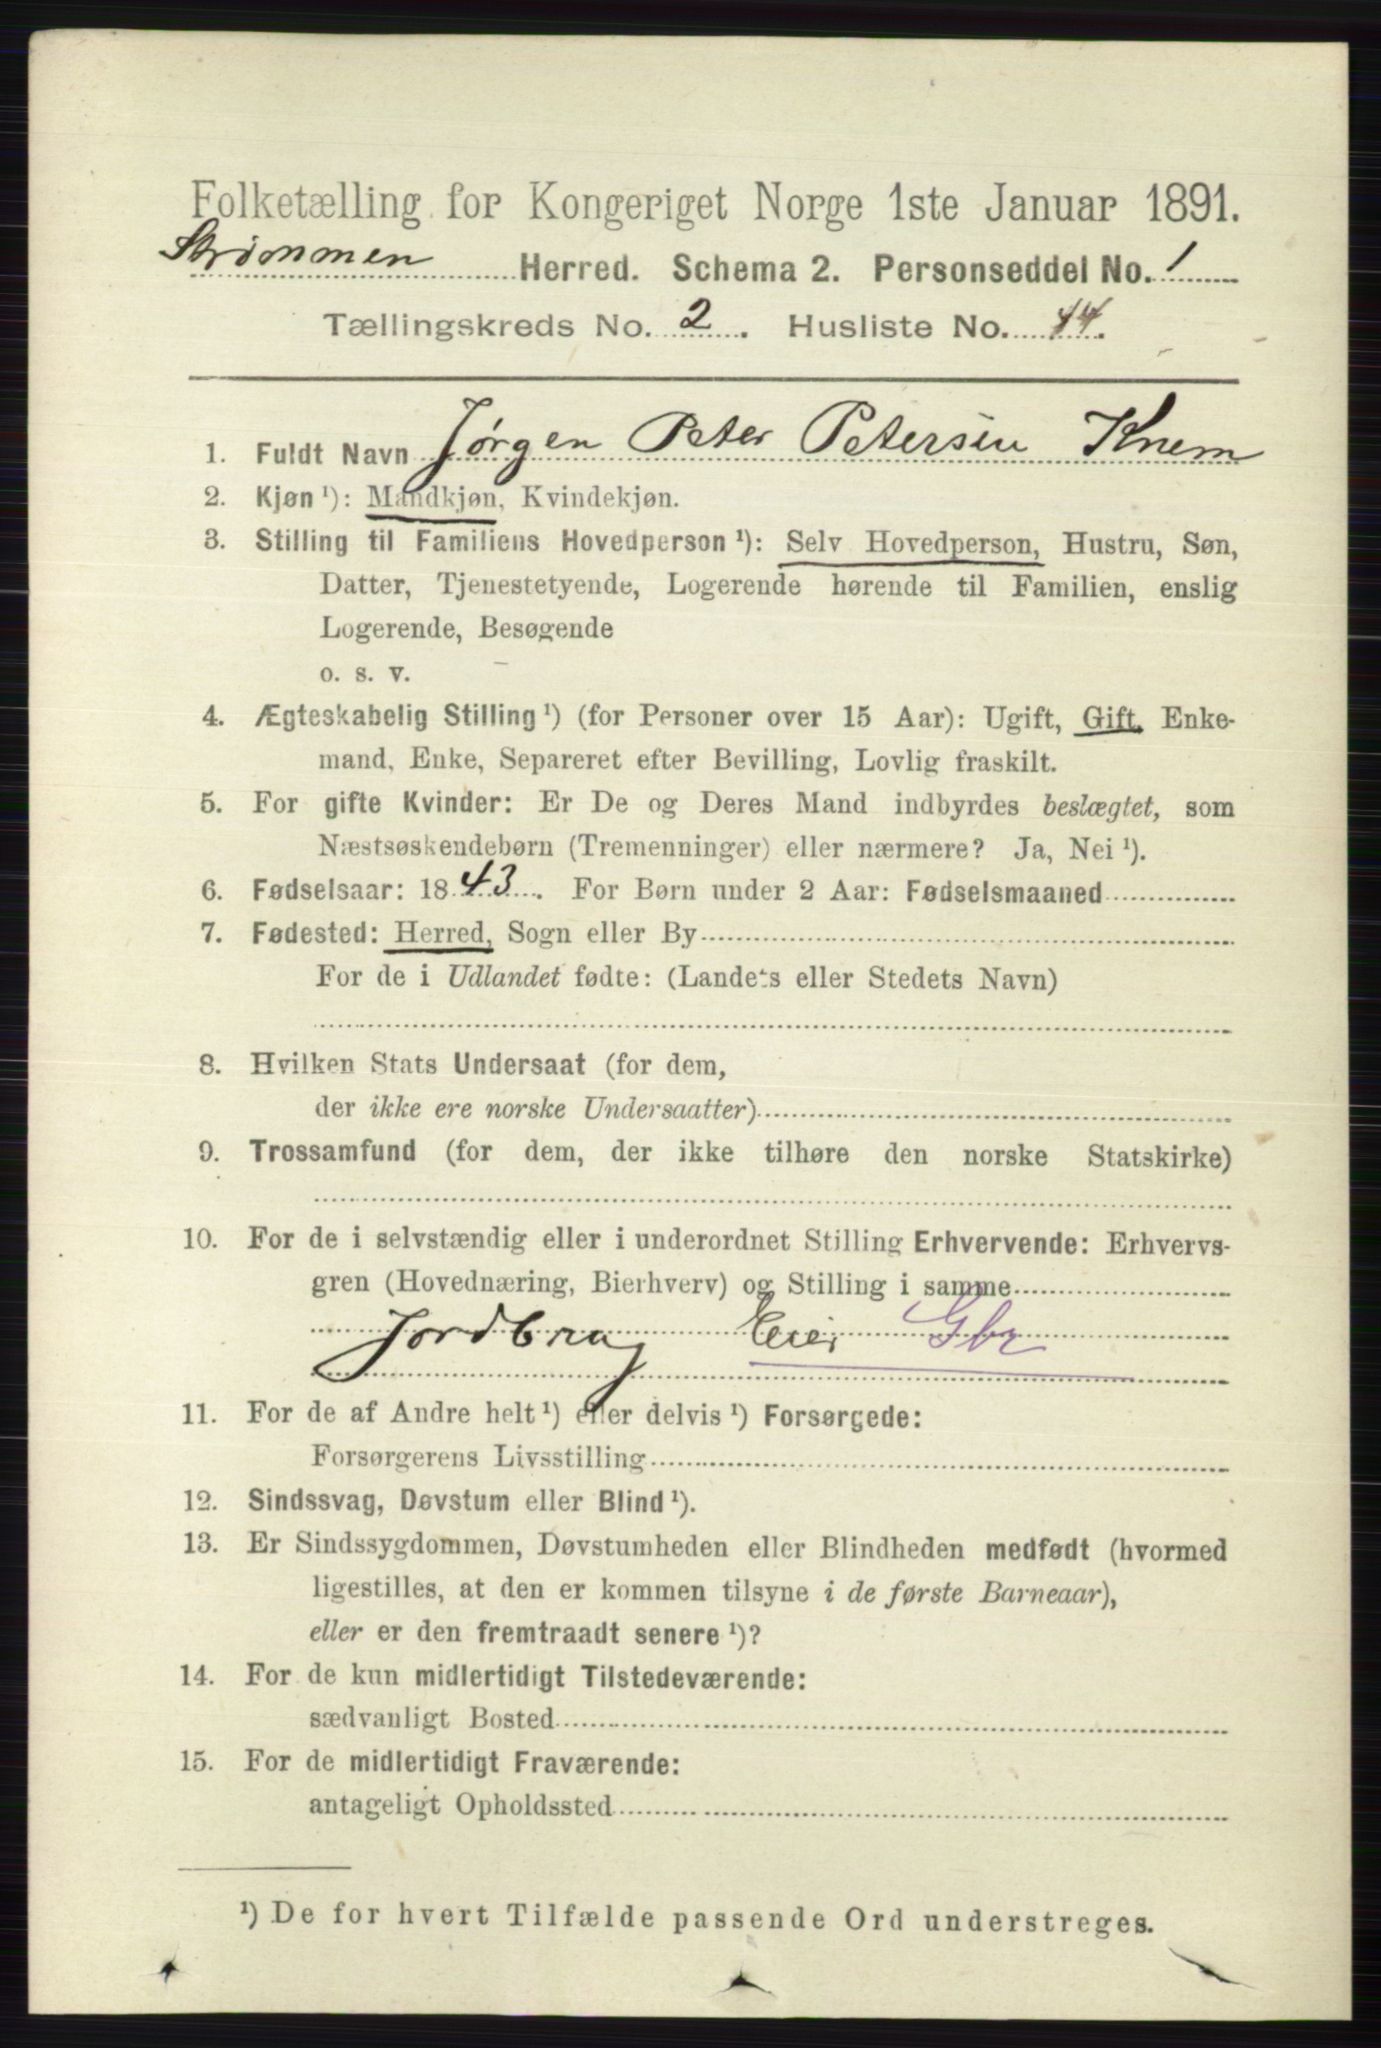 Folketælling for Kongeriget Norge 1ste Januar 1891.
Strømmen Herred. Schema 2. Personseddel No. 1
Tællingskreds No. 2. Husliste No. 44.
1. Fuldt Navn Jørgen Peter Petersen Knem
2. Kjøn¹): Mandkjøn, Kvindekjøn.
3. Stilling til Familiens Hovedperson¹): Selv Hovedperson, Hustru, Søn,
Datter, Tjenestetyende, Logerende hørende til Familien, enslig
Logerende, Besøgende
o. s. v.
4. Ægteskabelig Stilling¹) (for Personer over 15 Aar): Ugift, Gift, Enke-
mand, Enke, Separeret efter Bevilling, Lovlig fraskilt.
5. For gifte Kvinder: Er De og Deres Mand indbyrdes beslægtet, som
Næstsøskendebørn (Tremenninger) eller nærmere? Ja, Nei¹).
6. Fødselsaar: 1843. For Børn under 2 Aar: Fødselsmaaned
7. Fødested: Herred, Sogn eller By
For de i Udlandet fødte: (Landets eller Stedets Navn)
8. Hvilken Stats Undersaat (for dem,
der ikke ere norske Undersaatter)
9. Trossamfund (for dem, der ikke tilhøre den norske Statskirke)
10. For de i selvstændig eller i underordnet Stilling Erhvervende: Erhvervs-
gren (Hovednæring, Bierhverv) og Stilling i samme
Jordbrug Eier Gbr
11. For de af Andre helt¹) eller delvis¹) Forsørgede:
Forsørgerens Livsstilling
12. Sindssvag, Døvstum eller Blind¹).
13. Er Sindssygdommen, Døvstumheden eller Blindheden medfødt (hvormed
ligestilles, at den er kommen tilsyne i de første Barneaar),
eller er den fremtraadt senere¹)?
14. For de kun midlertidigt Tilstedeværende:
sædvanligt Bosted
15. For de midlertidigt Fraværende:
antageligt Opholdssted
¹) De for hvert Tilfælde passende Ord understreges.